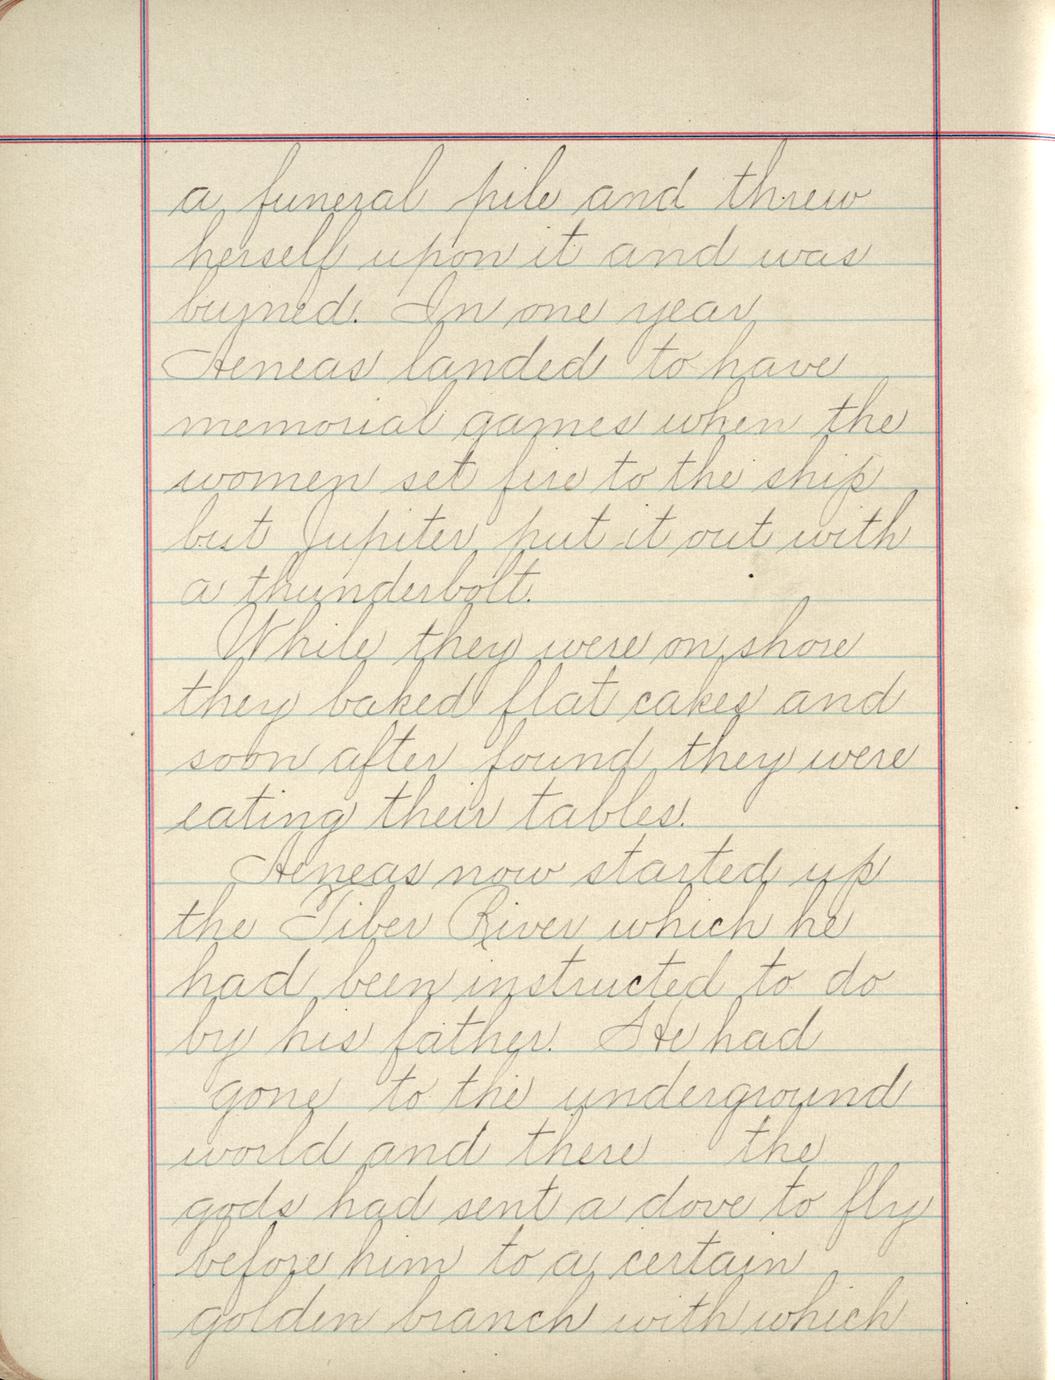 a funeral pile and threw
herself upon it and was
burned. In one year
Aeneas landed to have
memorial games when the
women set fire to the ship
but Jupiter put it out with
a thunderbolt.
While they were on shore
they baked flat cakes and
soon after found they were
eating their tables.
Aeneas now started up
the Tiber River which he
had been instructed to do
by his father. He had
gone to the underground
world and there the
gods had sent a dove to fly
before him to a certain
golden branch with which